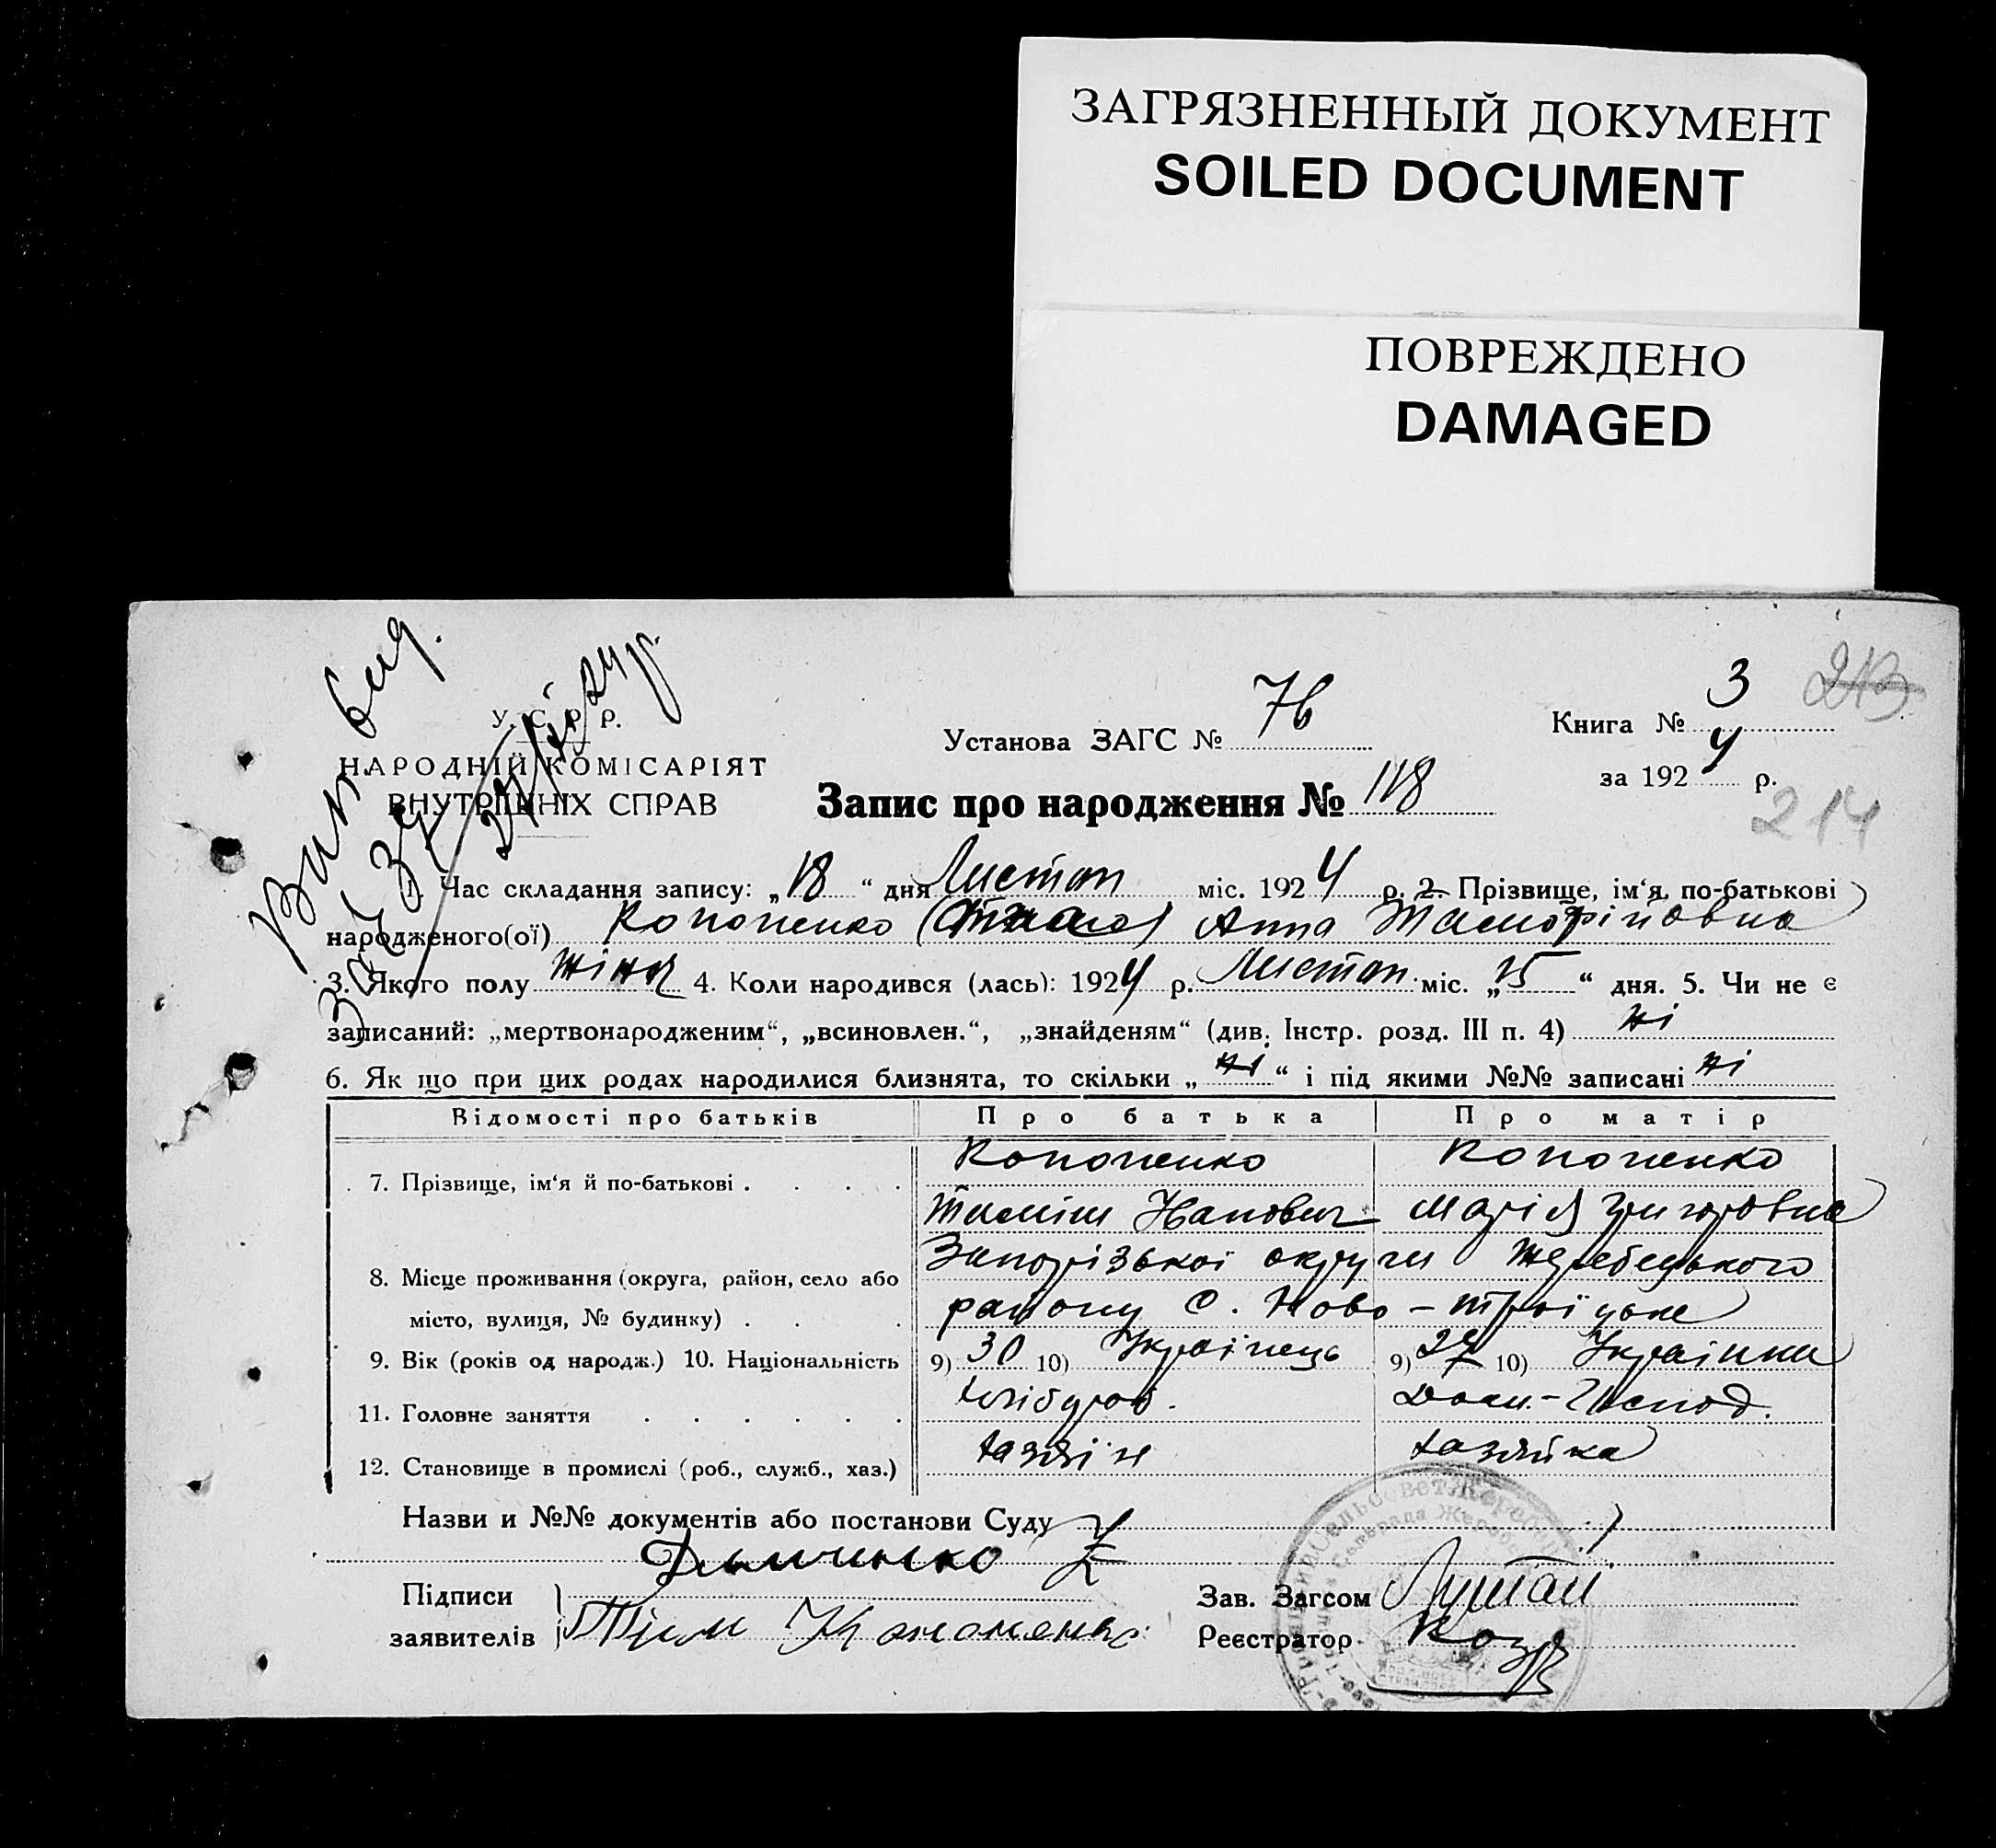 ЗАГРЯЗНЕННЫЙ ДОКУМЕНТ
SOILED DOCUMENT
ПОВРЕЖДЕНО
DAMAGED
Вип вид.
213
214
У. С. Р. Р.
НАРОДНІЙ КОМІСАРІЯТ
ВНУТРІШНІХ СПРАВ
Установа ЗАГС № 76
Книга № 3
за 1924 р.
Запис про народження № 118
Час складання запису: „18“ дня Листоп міс. 1924 р. 2. Прізвище, ім‘я, по-батькові
народженого(ої) Кононенко Анна
3. Якого полу жіноч 4. Коли народився (лась): 1924 р. Листоп. міс. „15“ дня. 5. Чи не є
записаний: „мертвонародженим“, „всиновлен.“, „знайденям“ (див. Інстр. розд. III п. 4) ні
6. Як що при цих родах народилися близнята, то скільки „ні“ і під якими №№ записані ні
Відомості про батьків Про батька Про матір
7. Прізвище, ім‘я й по-батькові . . . . Кононенко Кононенко
Іванович Марія Григоровна
8. Місце проживання (округа, район, село або Запорізькоі округи Жеребецького
місто, вулиця, № будинку) . . . району С. Ново-Троїцьке
9. Вік (років од народж.) 10. Національність 9) 30 10) Українець 9) 27 10) Українка
11. Головне заняття . . . . . . хлібороб. Дом.-Господ.
12. Становище в промислі (роб., служб., хаз.) хазяїн хазяйка
Назви и №№ документів або постанови Суду
Підписи
заявителів Кононенко
Зав. Загсом
Реєстратор